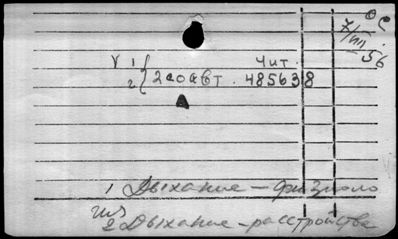 7/III 56
V 1 Чит.
2 2 соавт. 485638
1 Дыхание — физиоло
гия
2 Дыхание — расстройства